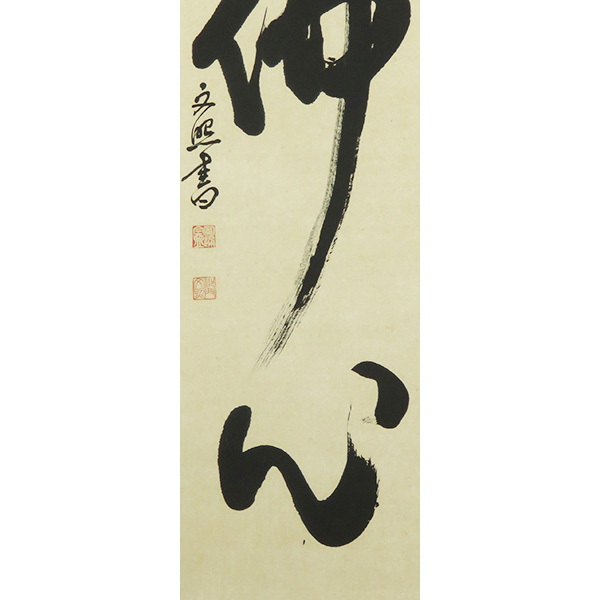 佛心
文熙書